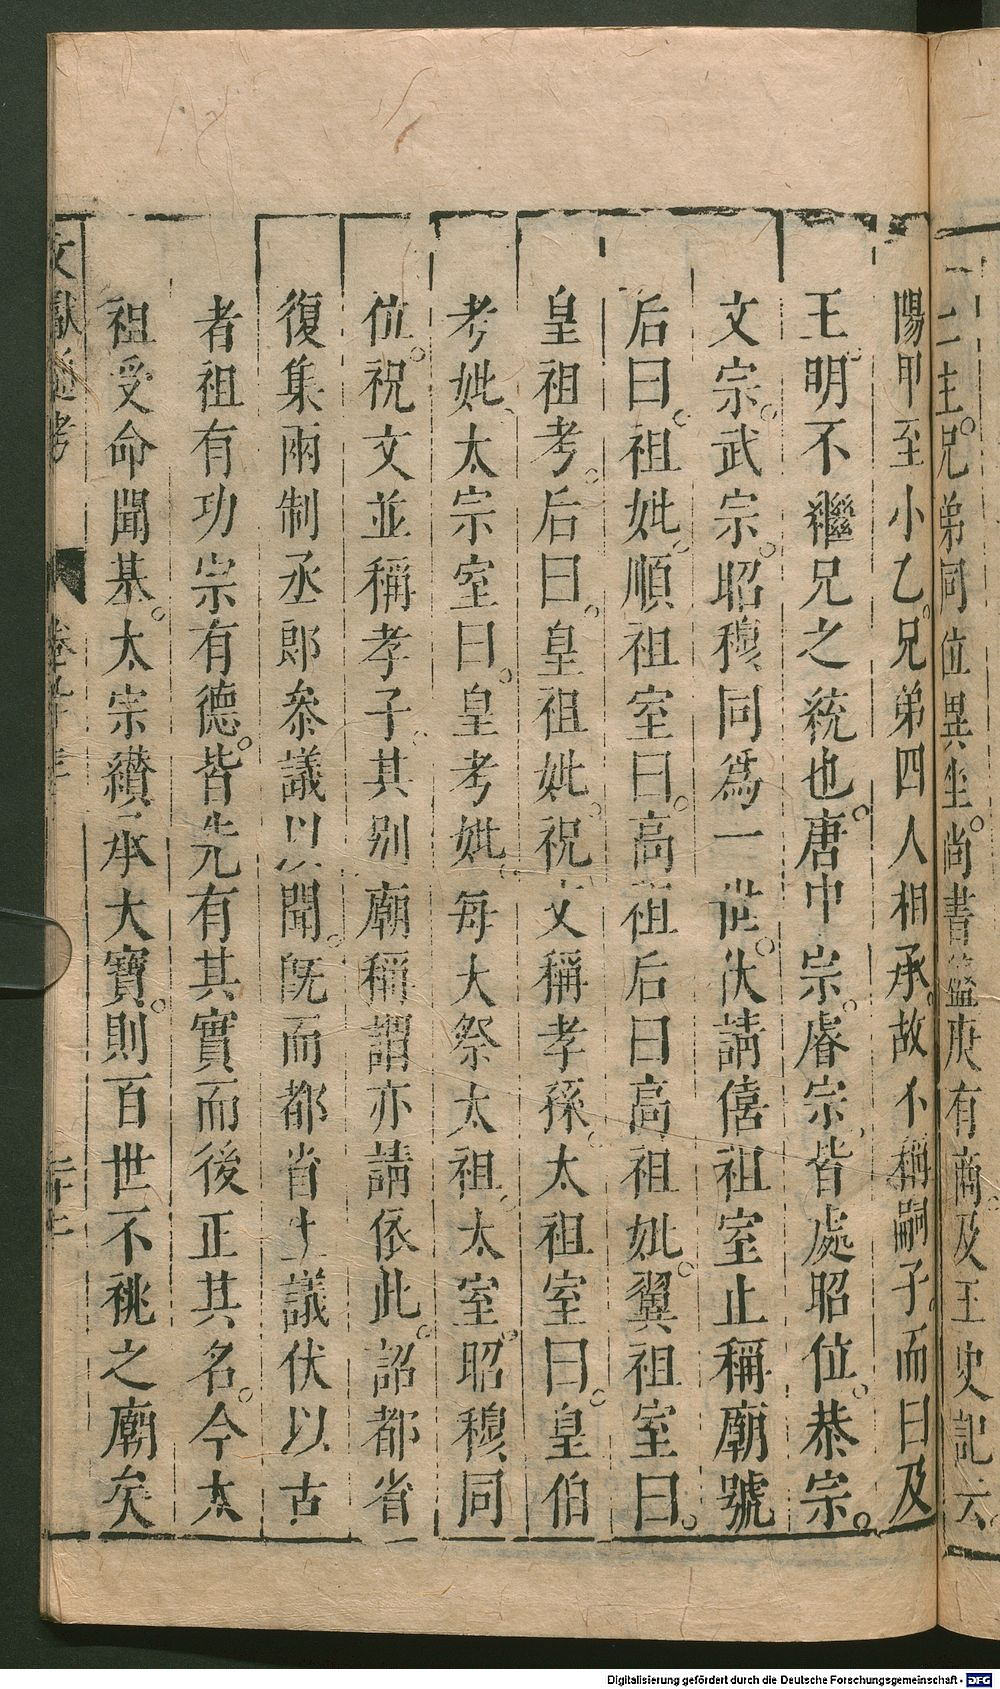 二主兄弟同位異坐尚書盤庚有商及王史記云
陽甲至小乙兄弟四人相承故不稱嗣子而曰及
王明不繼兄之統也唐中宗睿宗皆處昭位恭宗
文宗武宗昭穆同爲一世伏請僖祖室止稱廟號
后曰祖妣順祖室曰高祖后曰高祖妣翼祖室曰
皇祖考后曰皇祖妣祝文稱孝孫太祖室曰皇伯
考妣太宗室曰皇考妣每大祭太祖太室昭穆同
位祝文並稱孝子其别廟稱謂亦請依此詔都省
復集兩制丞郎參議以聞既而都省上議伏以古
者祖有功宗有德皆先有其實而後正其名今太
祖受命開基太宗纘承大寶則百世不祧之廟矣
文獻通考
Digitalisierung gefördert durch die Deutsche Forschungsgemeinschaft - DFG